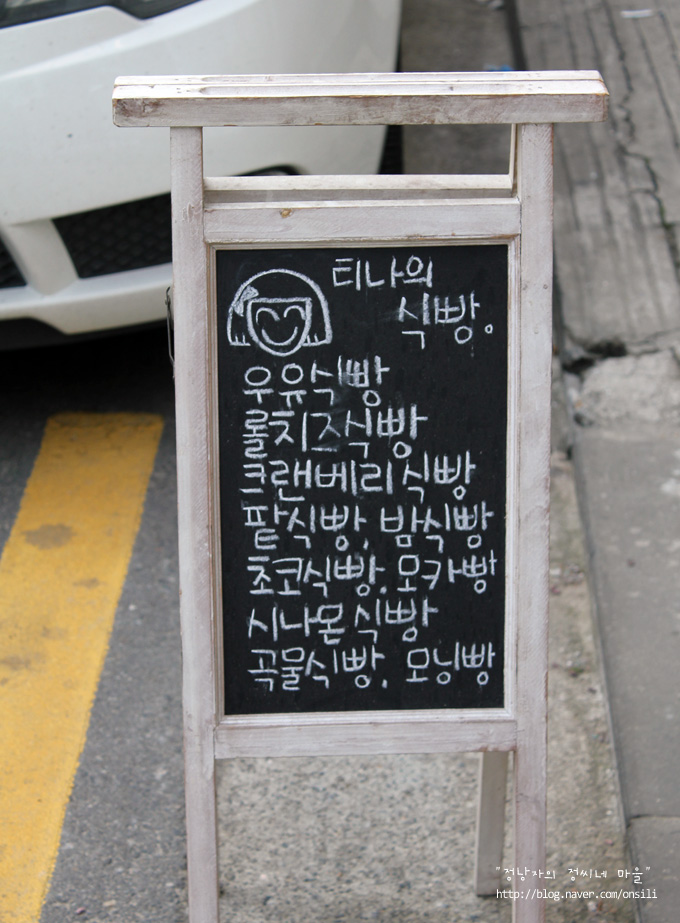 티나의
식빵.
우유식빵
롤치즈식빵
크랜베리식빵
팥식빵, 밤식빵
초코식빵. 모카빵
시나몬식빵
곡물식빵. 모닝빵
"정남자의 정씨네 마을"
http://blog.naver.com/onsili